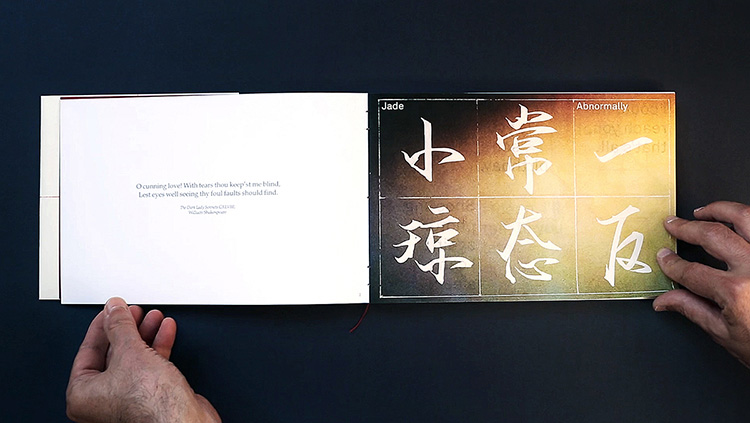 O cunning love! With tears thou keep'st me blind,
Lest eyes well seeing thy foul faults should find.
William Shakespeare
Jade
Abnormally
一反
常态
小琼